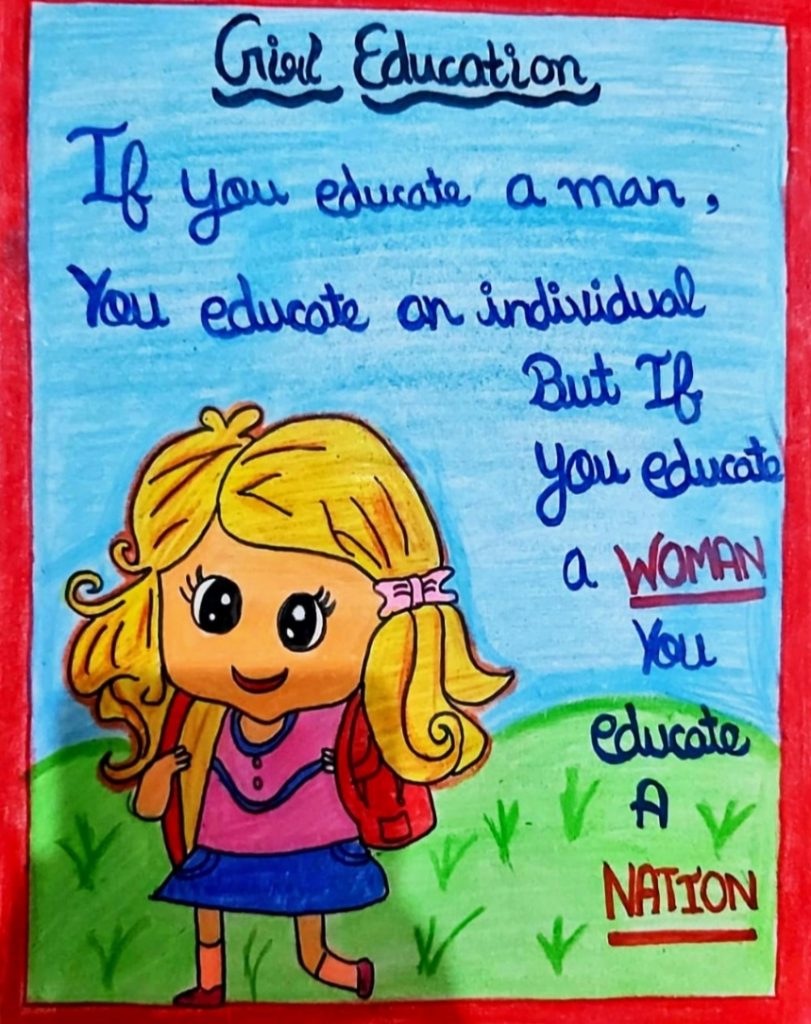 Girl Education
If you educate a man,
You educate an individual
But If
you educate
a WOMAN
You
educate
A
NATION